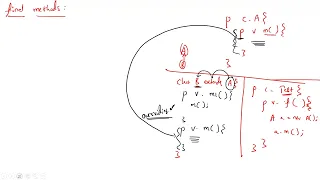 final methods:
p c. A{
p v. m(){
}
}
A
B
class B extends A{
p v. m(){
m();
}
override
p v. m(){
}
}
p c. Test{
p v. f(){
A a = new A();
a.m();
}
}